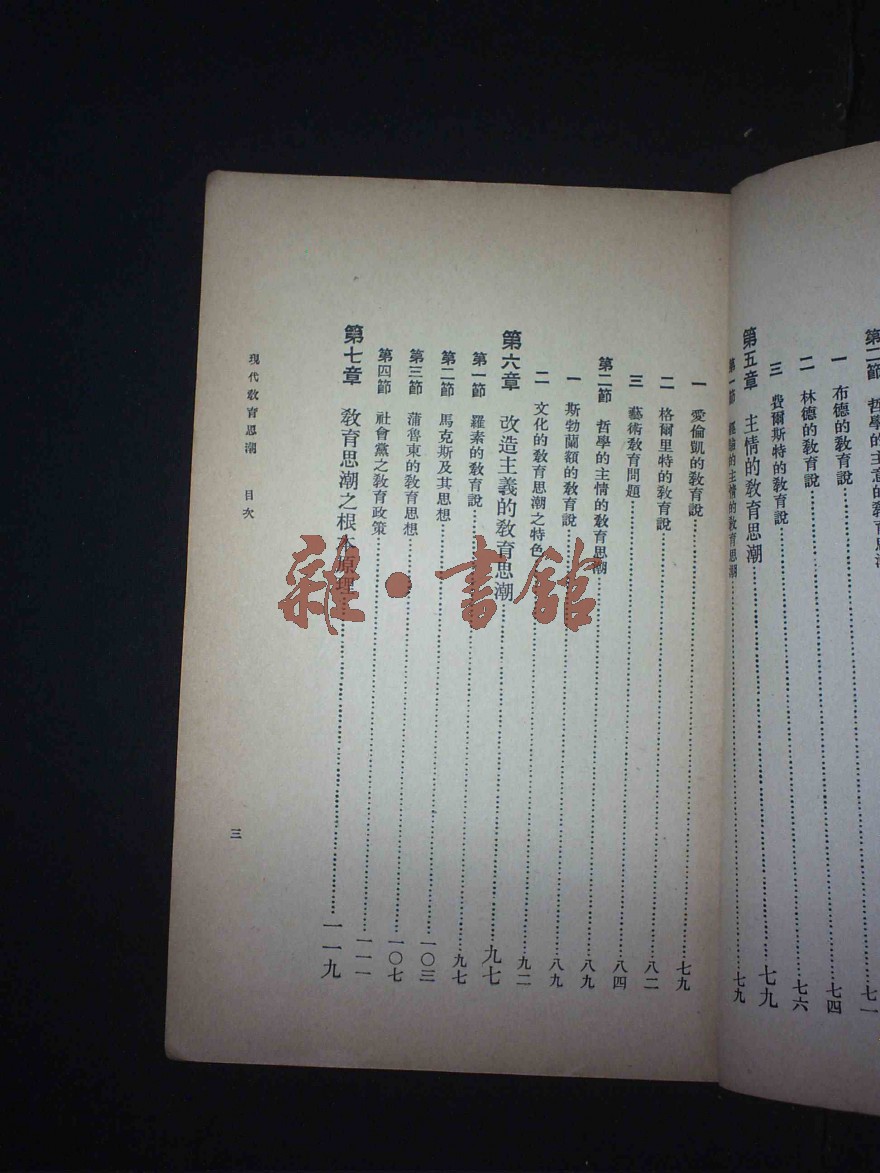 第二節 哲學的主意的敎育思潮……七一
一 布德的敎育說……七四
二 林德的敎育說……七六
三 費爾斯特的敎育說
第五章 主情的敎育思潮……七九
第一節 經驗的主情的敎育思潮……七九
一 愛倫凱的敎育說……七九
二 格爾里特的敎育說……八二
三 藝術敎育問題……八四
第二節 哲學的主情的敎育思潮……八九
一 斯勃蘭額的敎育說……八九
二 文化的敎育思潮之特色……九二
第六章 改造主義的敎育思潮……九七
第一節 羅素的敎育說……九七
第二節 馬克斯及其思想……一〇三
第三節 蒲魯東的敎育思想……一〇七
第四節 社會黨之敎育政策……一一一
第七章 敎育思潮之根本原理……一一九
現代敎育思潮 目次
三
雜·書館